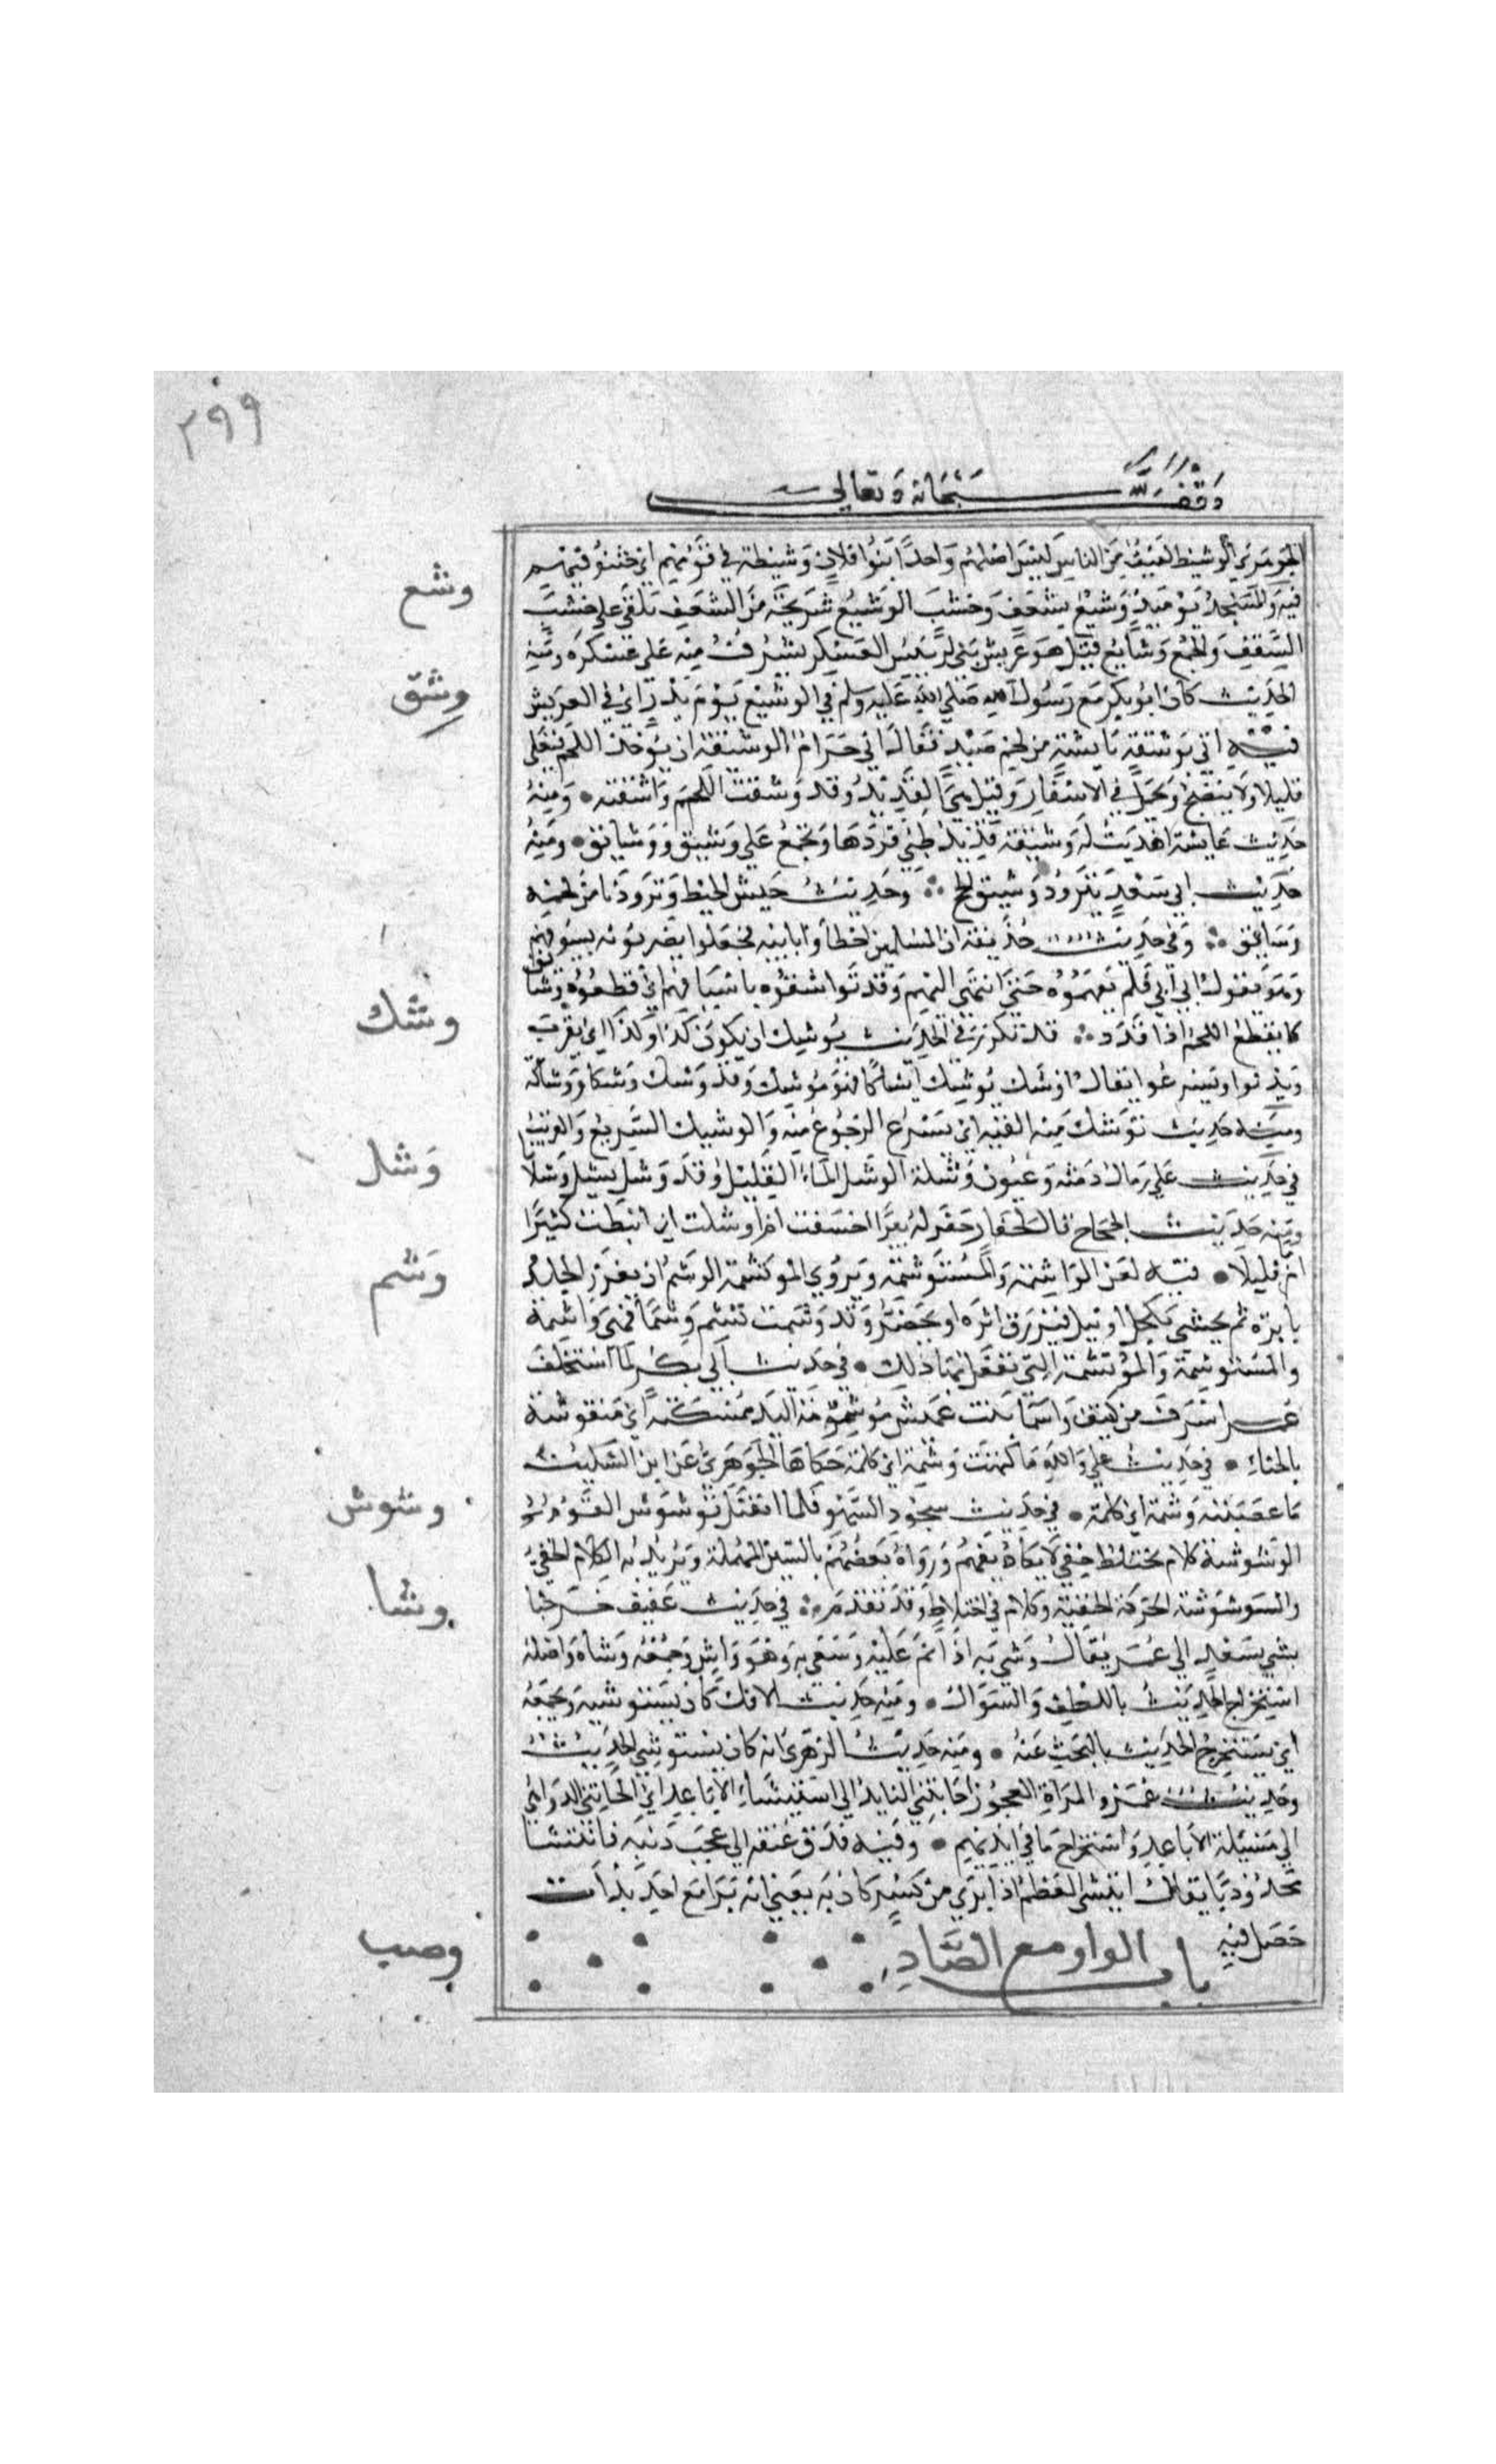 ٢٩٩
وقف لله سبحانه وتعالى
الجوهري الوشيظ لفيف من الناس ليس اصلهم واحدا بنوا فلان وشيظة في قومهم اي حشو فيهم
وشع
فيه والمسجد يوميذ وشيع بسعف وخشب الوشيع شريجة من السعف تلقى على خشب
السقف والجمع وشايع قيل هو عريش يبنى لرييس العسكر يشرف منه على عسكره ومنه
الحديث كان ابو بكر مع رسول الله صلى الله عليه وسلم في الوشيع يوم بدر اي في العريش
وشق
فيه اتي بوشيقة يابسة من لحم صيد فقال اني حرام الوشيقة ان يوخذ اللحم فيغلى
قليلا ولا ينضج ويحمل في الاسفار وقيل هي القديد وقد وشقت اللحم واشقته ومنه
حديث عايشة اهديت له وشيقة قديد ظبي فردها وتجمع على وشيق ووشايق ومنه
حديث ابي سعد نتزود وشيق لحم وحديث جيش الخبط وتزودنا من لحمه
وشايق وفي حديث حذيفة ان المسلمين اخطأوا بابيه فجعلوا يضربونه بسيوفهم
وهو يقول ابي ابي فلم يفهموه حتى انتهى اليهم وقد تواشقوه باسيافهم اي قطعوه وشايق
كما يقطع اللحم اذا قدد
وشك
قد تكرر في الحديث يوشيك ان يكون كذا وكذا اي يقرب
ويدنوا ويسرع يقال اوشك يوشيك ايشاكا فهو موشيك وقد وشك وشكا ووشاكة
ومنه حديث توشك منه الفيه اي تسرع الرجوع منه والوشيك السريع والقريب
وشل
في حديث علي رمال دمثة وعيون وشلة الوشل الماء القليل وقد وشل يشل وشلانا
ومنه حديث الحجاج قال لحفار حفر له بيرا اخسفت ام اوشلت اي انبطت كثيرا
ام قليلا
وشم
فيه لعن الواشمة والمستوشمة ويروي الموتشمة الوشم ان يغرز الجلد
بابرة ثم يحشي بكحل او نيل فيزرق اثره او يخضر وقد وشمت تشم وشما فهي واشمة
والمستوشمة والموتشمة التي تفعل بها ذلك في حديث ابي بكر لما استخلف
عمر اشرف من كنيف واسما بنت عميس موشومة اليد ممسكته اي منقوشة
بالحناء في حديث علي والله ما كتمت وشمة اي كلمة حكاها الجوهري عن ابن السكيت
ما عصيته وشمة اي كلمة
وشوش
في حديث سجود السهو فلما انفتل توشوش القوم
الوشوشة كلام مختلط خفي لا يكاد يفهم ورواه بعضهم بالسين المهملة ويريد به الكلام الخفي
والوشوشة الحركة الخفية وكلام في اختلاط وقد تقدم
وشا
في حديث عفيف خرجنا
نشي بسعد الى عمر يقال وشي به اذا نم عليه وسعى به وهو واش وجمعه وشاه واصله
استخراج الحديث باللطف والسوال ومنه حديث الافك كان يستوشيه ويجمعه
اي يستخرج الحديث بالبحث عنه ومنه حديث الزهري انه كان يستوشي الحديث
وحديث عمرو المراة العجوز اجايتني النايد الى استيشاء الاباعد اي الجاتني الدواهي
الى مسئلة الاباعد واستخراج ما في ايديهم وفيه فدق عنقه الى عجب ذنبه فايتشا
محدودبا يقال ايتشى العظم اذا ابرى من كسر كان به يعني انه برا مع احديداب
حصل فيه
باب الواو مع الصاد
وصب